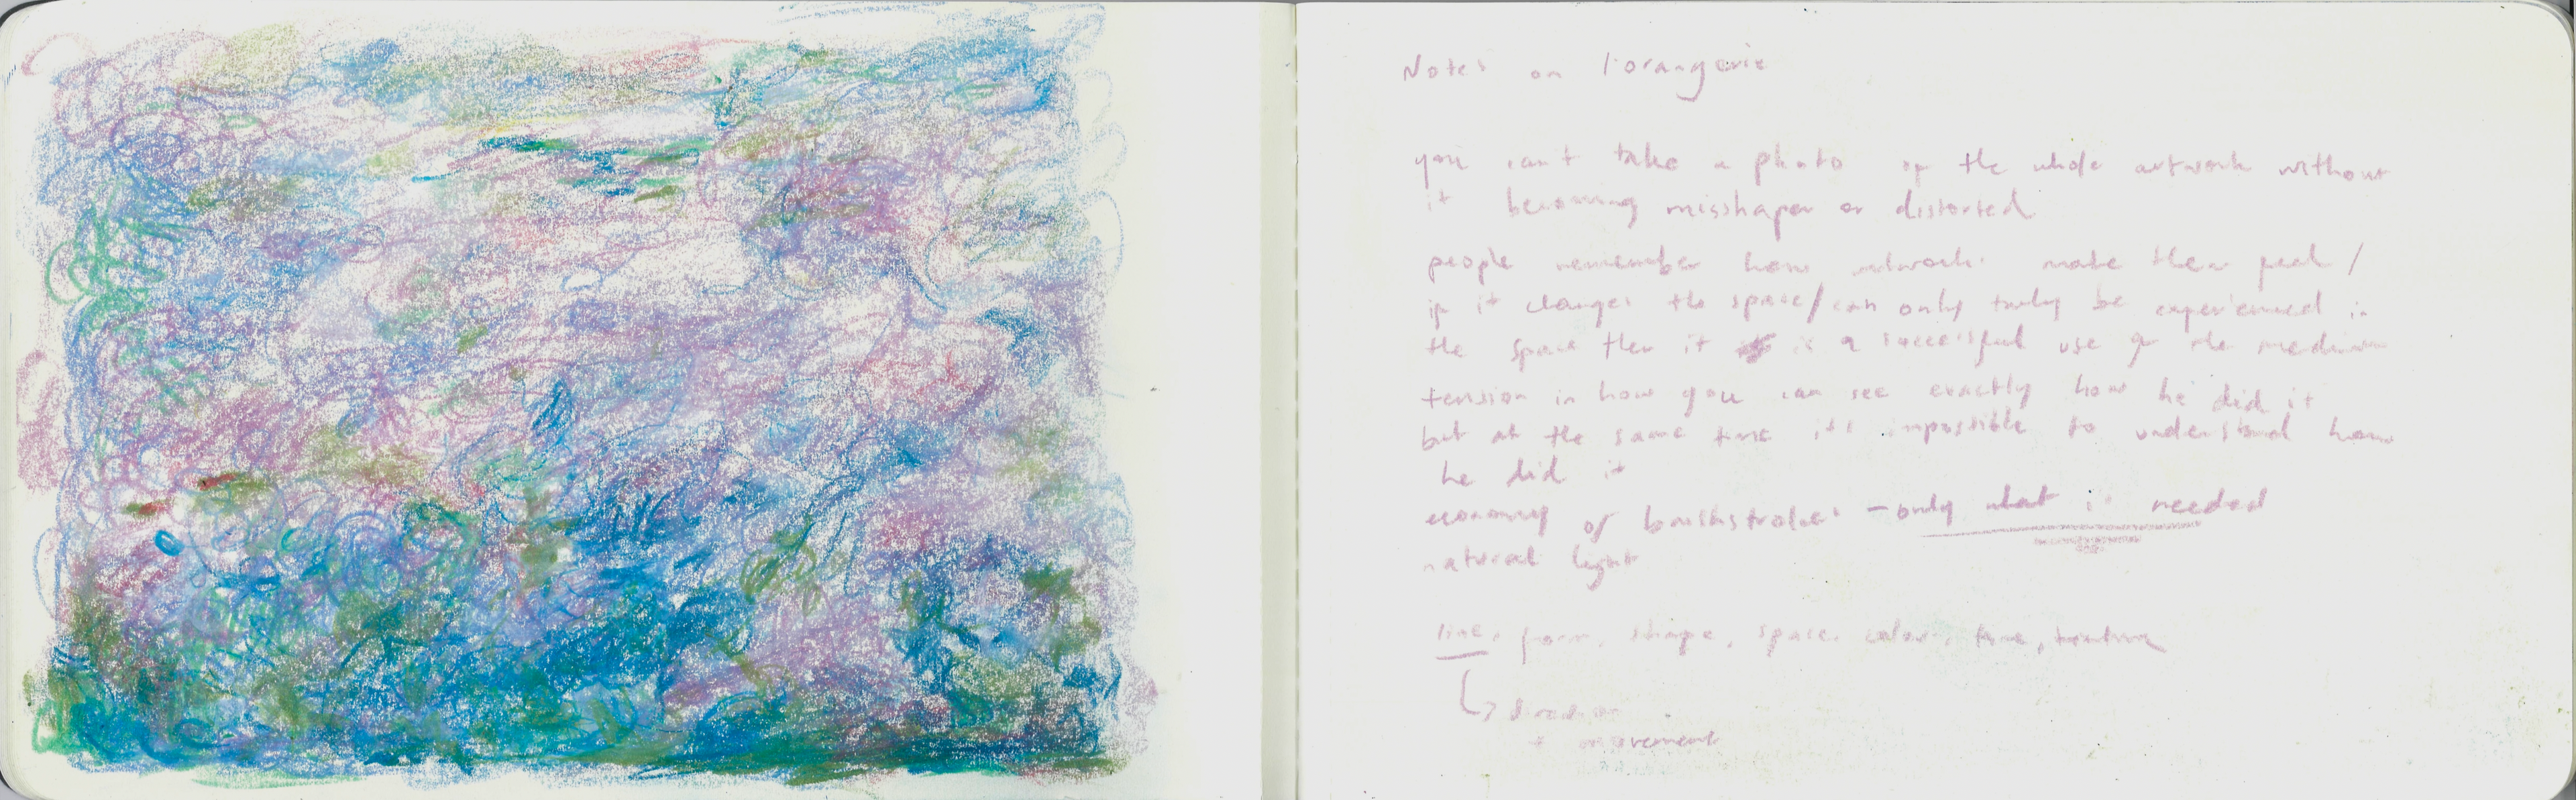 Notes on l'orangerie
you can't take a photo of the whole artwork without
it becoming misshapen or distorted
people remember how artworks make them feel /
if it changes the space / can only truly be experienced in
the space then it is a successful use of the medium
tension in how you can see exactly how he did it
but at the same time it's impossible to understand how
he did it
economy of brushstrokes - only what is needed
natural light
line, form, shape, space, colour, tone, texture
↳ direction
+ movement